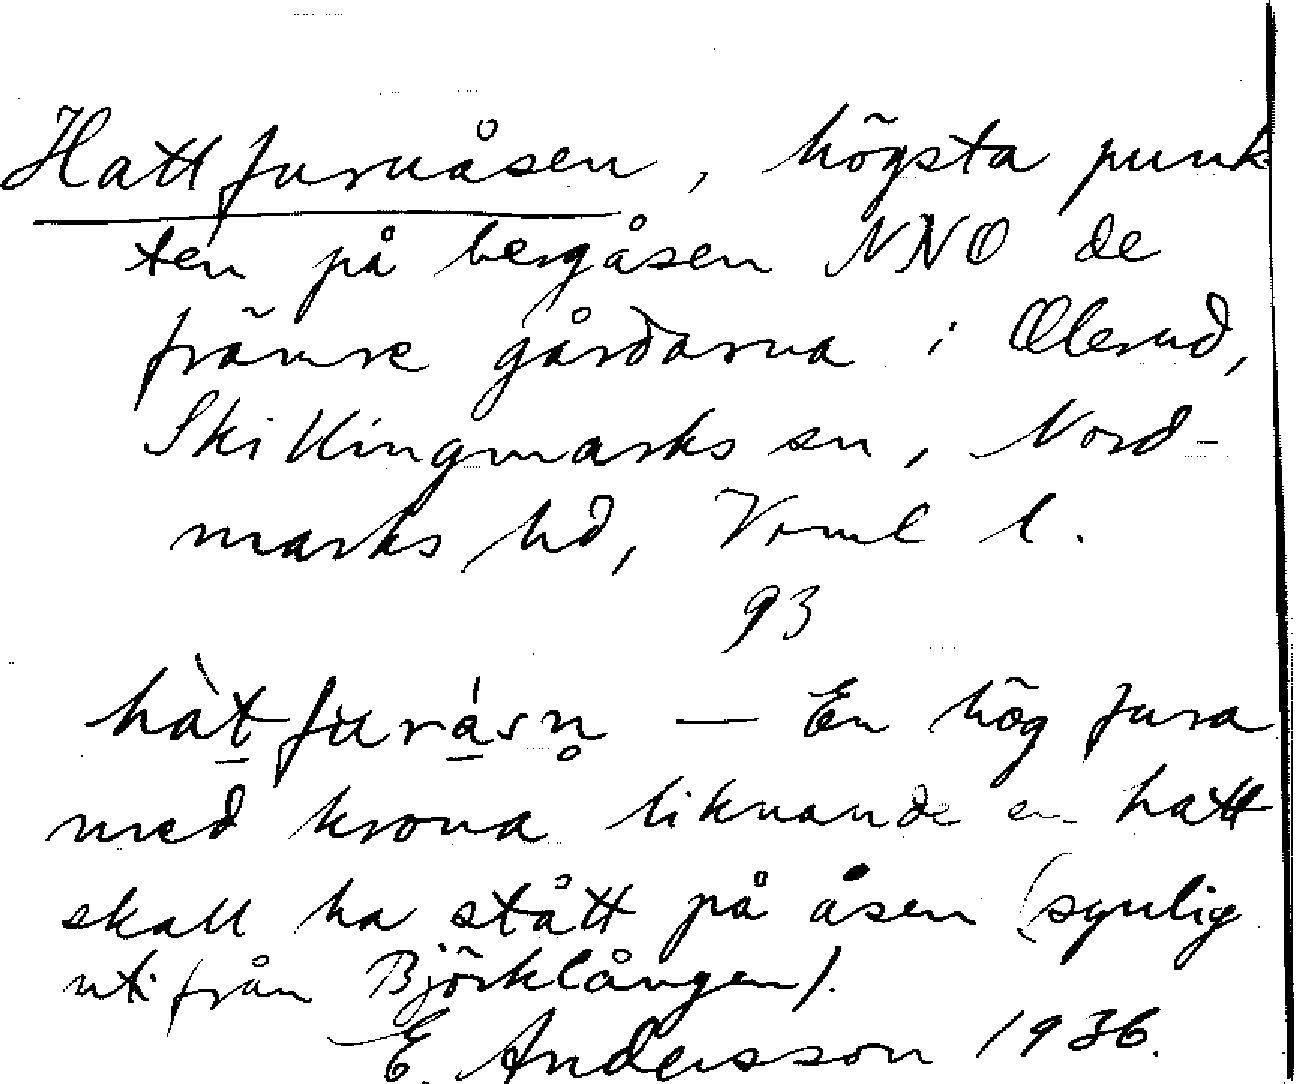 Hattfuruåsen, högsta punk
ten på bergåsen NNO de
främre gårdarna i Olerud,
Skillingmarks sn, Nord-
marks hd, Vrml l.
93
hàt̲furá̲sn̥ — En hög fura
med krona liknande en hatt
skall ha stått på åsen (synlig
utifrån Björklången).
E. Andersson 1936.